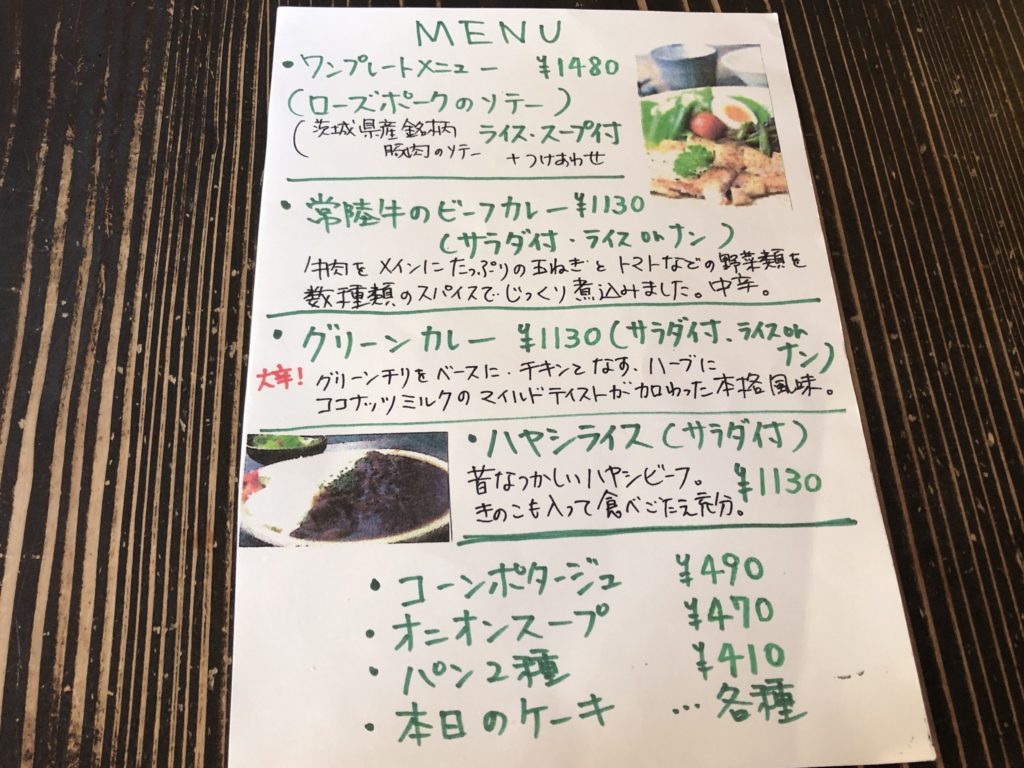 MENU
・ワンプレートメニュー ¥1480
(ローズポークのソテー)
(茨城県産銘柄 ライス・スープ付
豚肉のソテー +つけあわせ
・常陸牛のビーフカレー ¥1130
(サラダ付・ライスorナン)
牛肉をメインにたっぷりの玉ねぎとトマトなどの野菜類を
数種類のスパイスでじっくり煮込みました。中辛。
・グリーンカレー ¥1130(サラダ付、ライスor
ナン)
大辛! グリーンチリをベースに、チキンとなす、ハーブに
ココナッツミルクのマイルドテイストが加わった本格風味。
・ハヤシライス(サラダ付)
昔なつかしいハヤシビーフ。 ¥1130
きのこも入って食べごたえ充分。
・コーンポタージュ ¥490
・オニオンスープ ¥470
・パン2種 ¥410
・本日のケーキ …各種